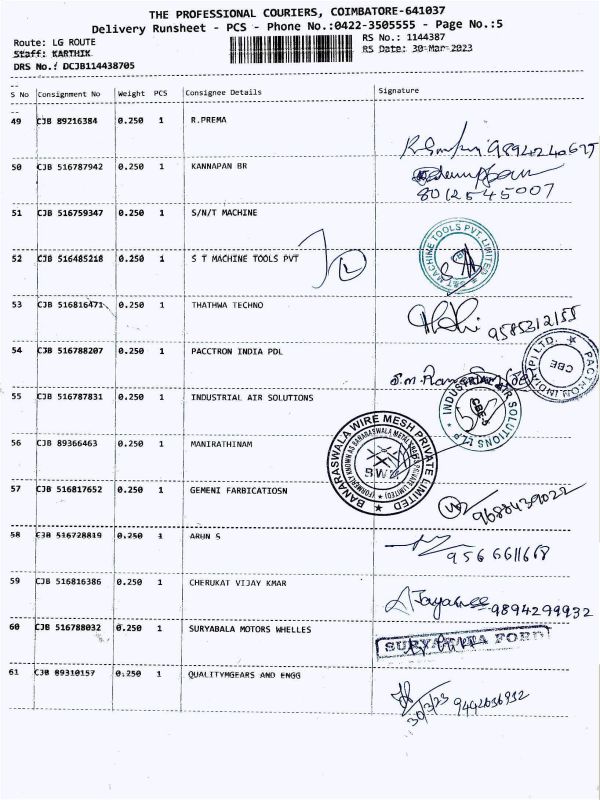 THE PROFESSIONAL COURIERS, COIMBATORE-641037
Delivery Runsheet - PCS - Phone No.:0422-3505555 - Page No.:5
Route: LG ROUTE RS No.: 1144387
Staff: KARTHIK RS Date: 30-Mar-2023
DRS No.: DCJB114438705
S No Consignment No Weight PCS Consignee Details Signature
49 CJB 89216384 0.250 1 R.PREMA
9894240675
50 CJB 516787942 0.250 1 KANNAPAN BR
8012545007
51 CJB 516759347 0.250 1 S/N/T MACHINE
52 CJB 516485218 0.250 1 S T MACHINE TOOLS PVT
S&T MACHINE TOOLS PVT. LIMITED CBE
53 CJB 516816471 0.250 1 THATHWA TECHNO
9585312155
54 CJB 516788207 0.250 1 PACCTRON INDIA PDL
PACTRON INDIA (P) LTD. CBE
55 CJB 516787831 0.250 1 INDUSTRIAL AIR SOLUTIONS
INDUSTRIAL AIR SOLUTIONS LLP CBE
56 CJB 89366463 0.250 1 MANIRATHINAM
BANARASWALA WIRE MESH PRIVATE LIMITED
57 CJB 516817652 0.250 1 GEMENI FARBICATIOSN
9688439022
58 CJB 516728819 0.250 1 ARUN S
9566611668
59 CJB 516816386 0.250 1 CHERUKAT VIJAY KMAR
9894299932
60 CJB 516788032 0.250 1 SURYABALA MOTORS WHELLES
SURYABALA FORD
61 CJB 89310157 0.250 1 QUALITYMGEARS AND ENGG
30/3/23 9442636932